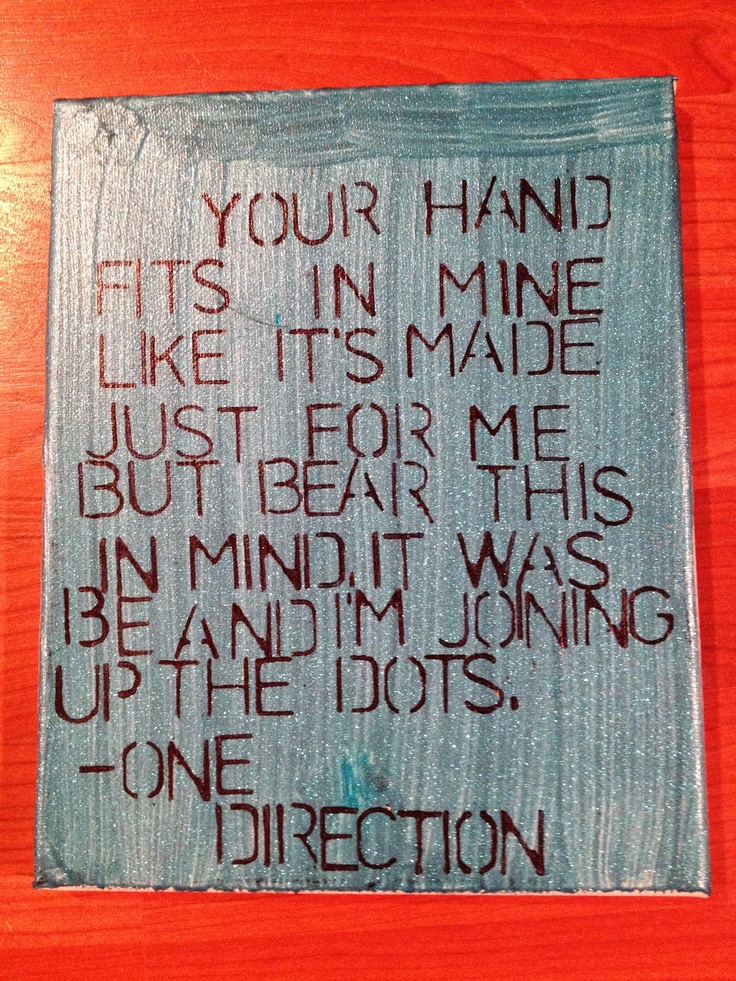 YOUR HAND
FITS IN MINE
LIKE IT'S MADE
JUST FOR ME
BUT BEAR THIS
IN MIND, IT WAS
BE AND I'M JOINING
UP THE DOTS.
-ONE
DIRECTION